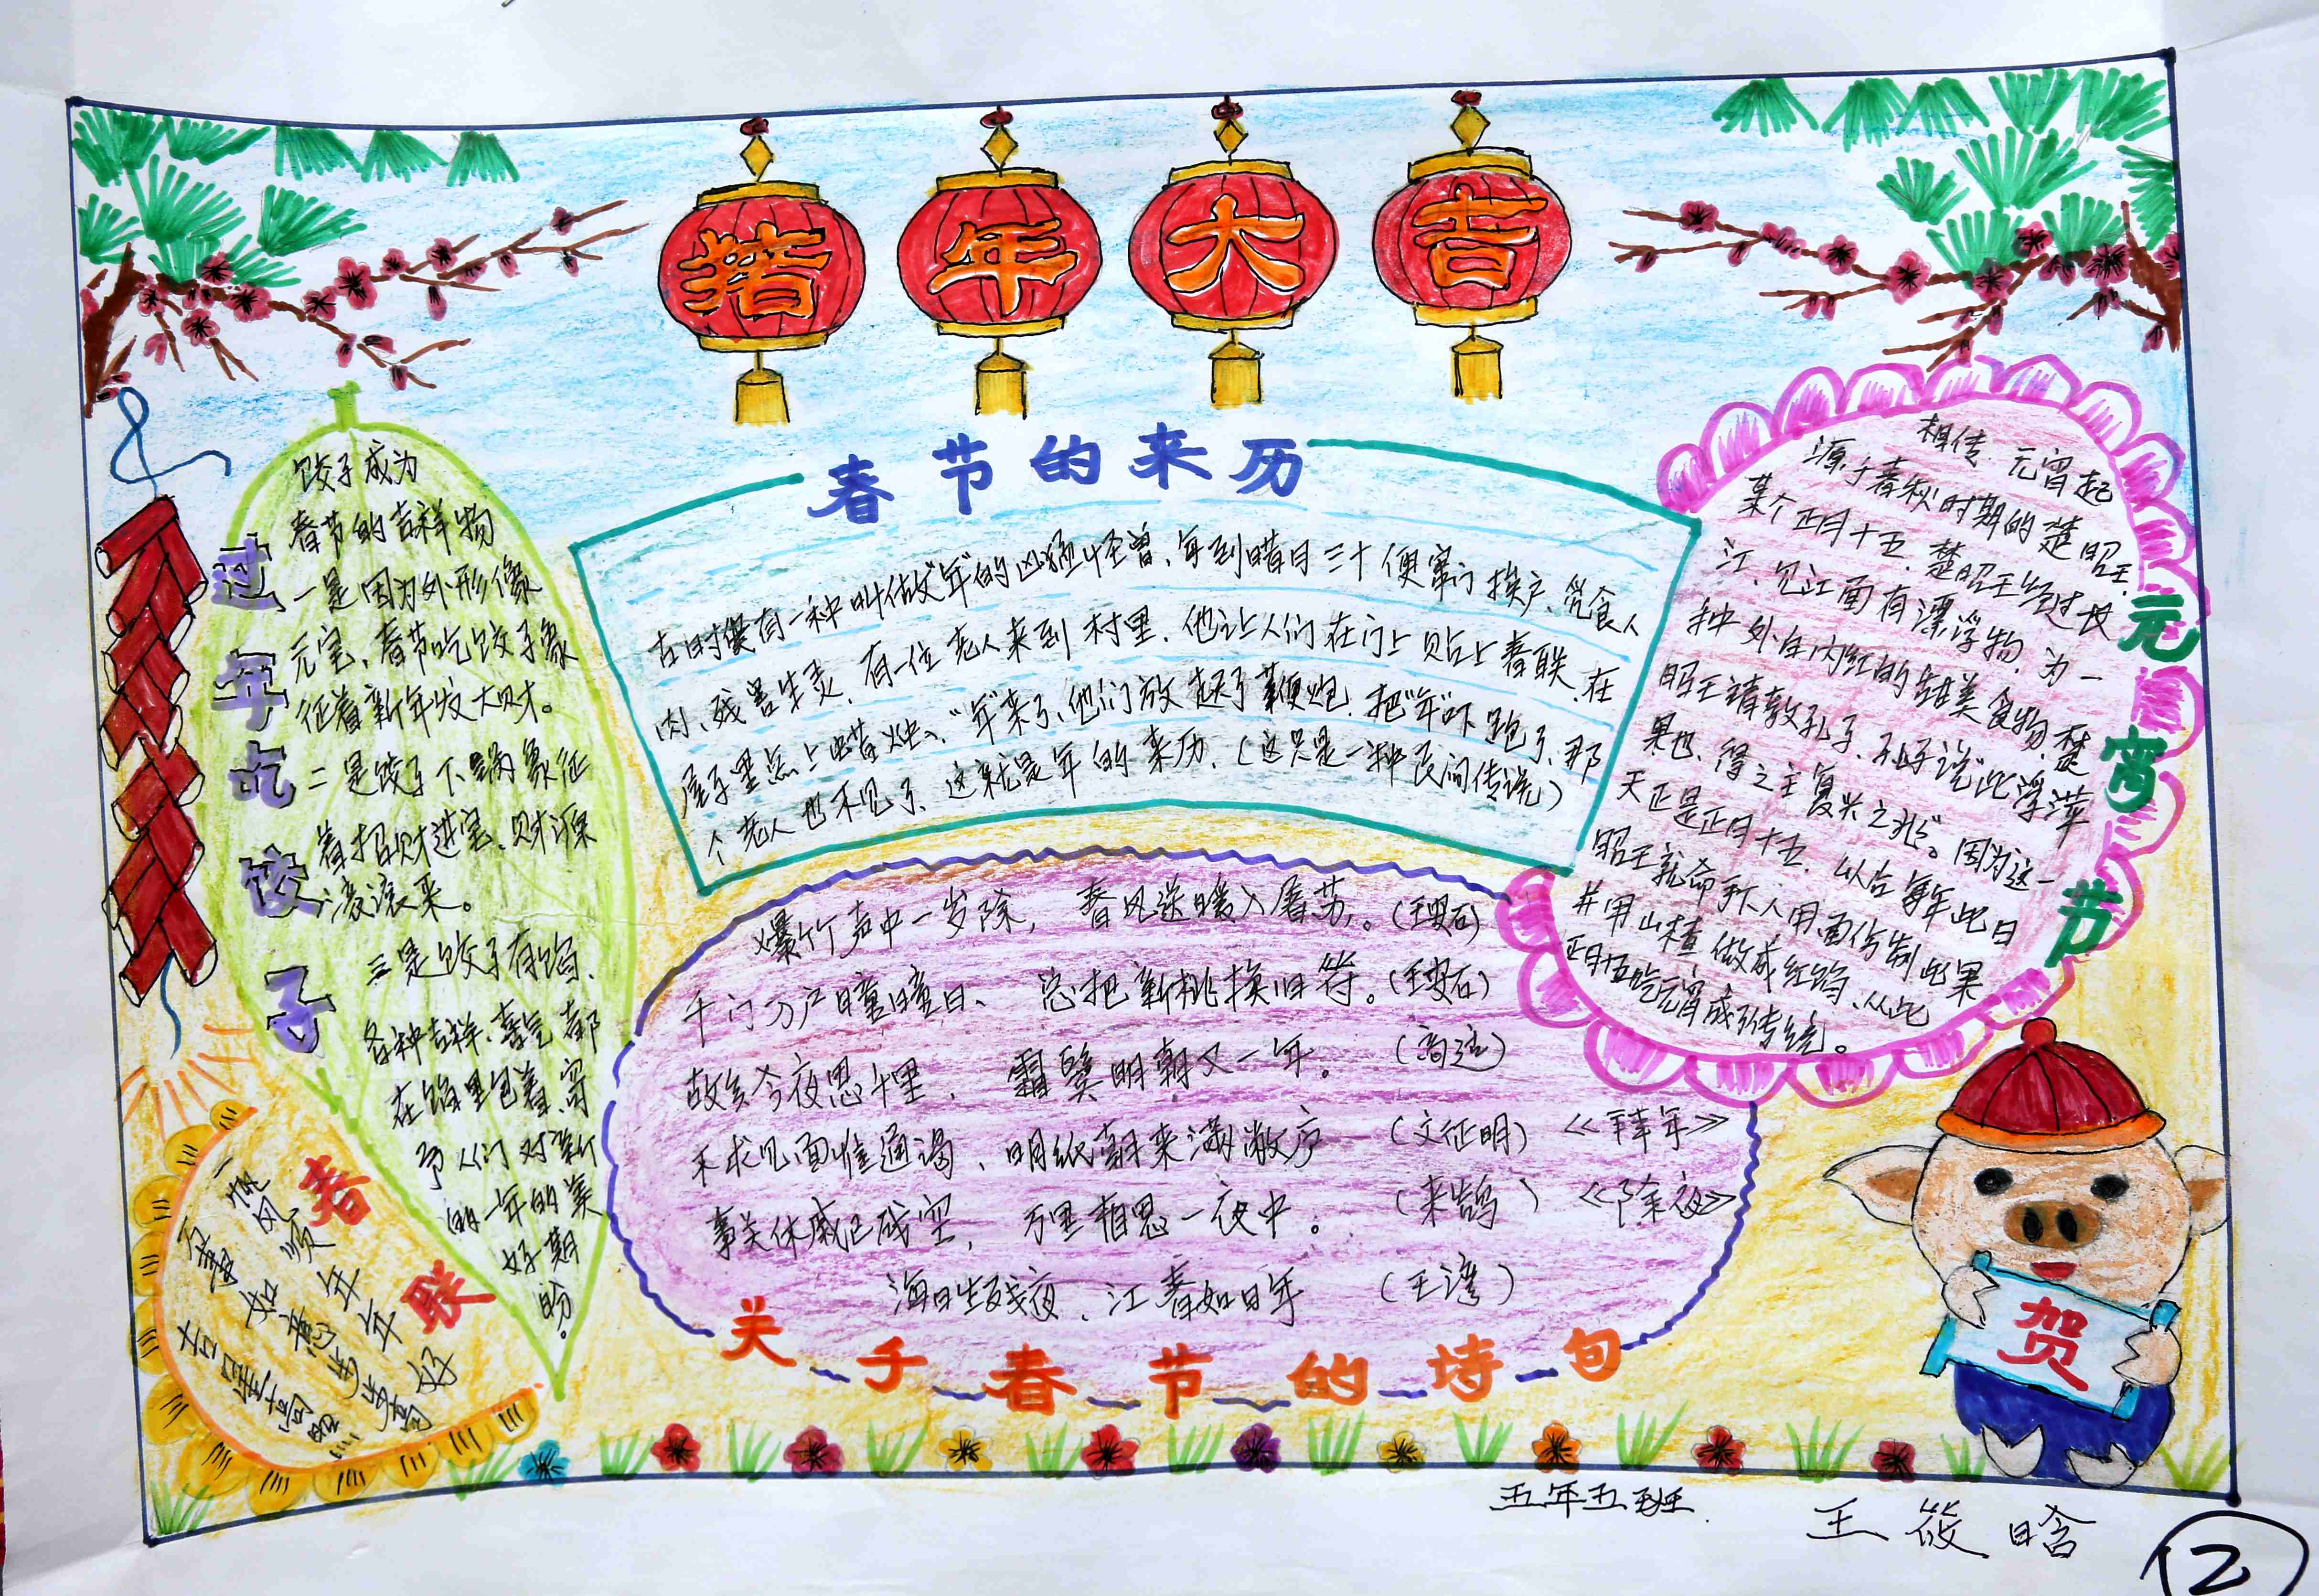 猪年大吉
过年吃饺子
饺子成为
春节的吉祥物
一是因为外形像
元宝、春节吃饺子象
征着新年发大财。
二是饺子下锅象征
着招财进宝、财源
滚滚来。
三是饺子有馅、
各种吉祥、喜气都
在馅里包着、寄
予人们对新
的一年的美
好期
盼。
春节的来历
古时候有一种叫做"年"的凶猛怪兽、每到腊月三十便窜门挨户、觅食人
肉、残害生灵、有一位老人来到村里、他让人们在门上贴上春联、在
屋子里点上蜡烛、"年"来了、他们放起了鞭炮、把"年"吓跑了、那
个老人也不见了、这就是年的来历、(这只是一种民间传说)
元宵节
相传、元宵起
源于春秋时期的楚昭王、
某个正月十五、楚昭王经过长
江、见江面有漂浮物、为一
种外白内红的甜美食物、楚
昭王请教孔子、孔子说"此浮萍
果也、得之主复兴之兆"。因为这一
天正是正月十五、以后每年此日
昭王就命手下人用面仿制此果
并用山楂做成红馅、从此
正月十五吃元宵成了传统。
爆竹声中一岁除，春风送暖入屠苏。(王安石)
千门万户曈曈日、总把新桃换旧符。(王安石)
故乡今夜思千里、霜鬓明朝又一年。(高适)
不求见面惟通谒、明纸朝来满敝庐 (文征明) 《拜年》
事关休戚已成空，万里相思一夜中。(来鹄) 《除夜》
海日生残夜、江春如日年 (王湾)
关于春节的诗句
春联
一帆风顺年年好
万事如意步步高
吉星高照
贺
五年五班.
王筱晗
2